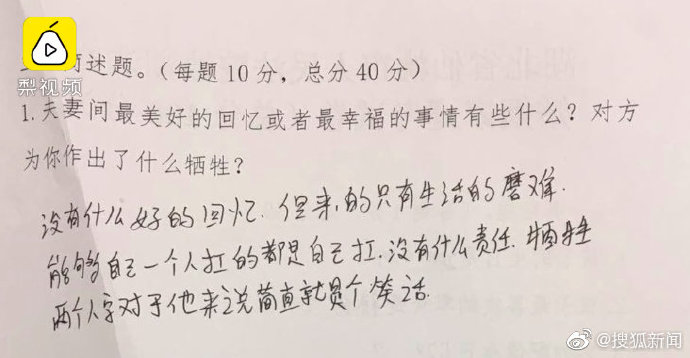 梨视频
简述题。(每题10分,总分40分)
1.夫妻间最美好的回忆或者最幸福的事情有些什么?对方
为你作出了什么牺牲?
没有什么好的回忆.但来的只有生活的磨难.
能够自己一个人扛的都是自己扛.没有什么责任.牺牲
两个人字对于他来说简直就是个笑话.
@搜狐新闻